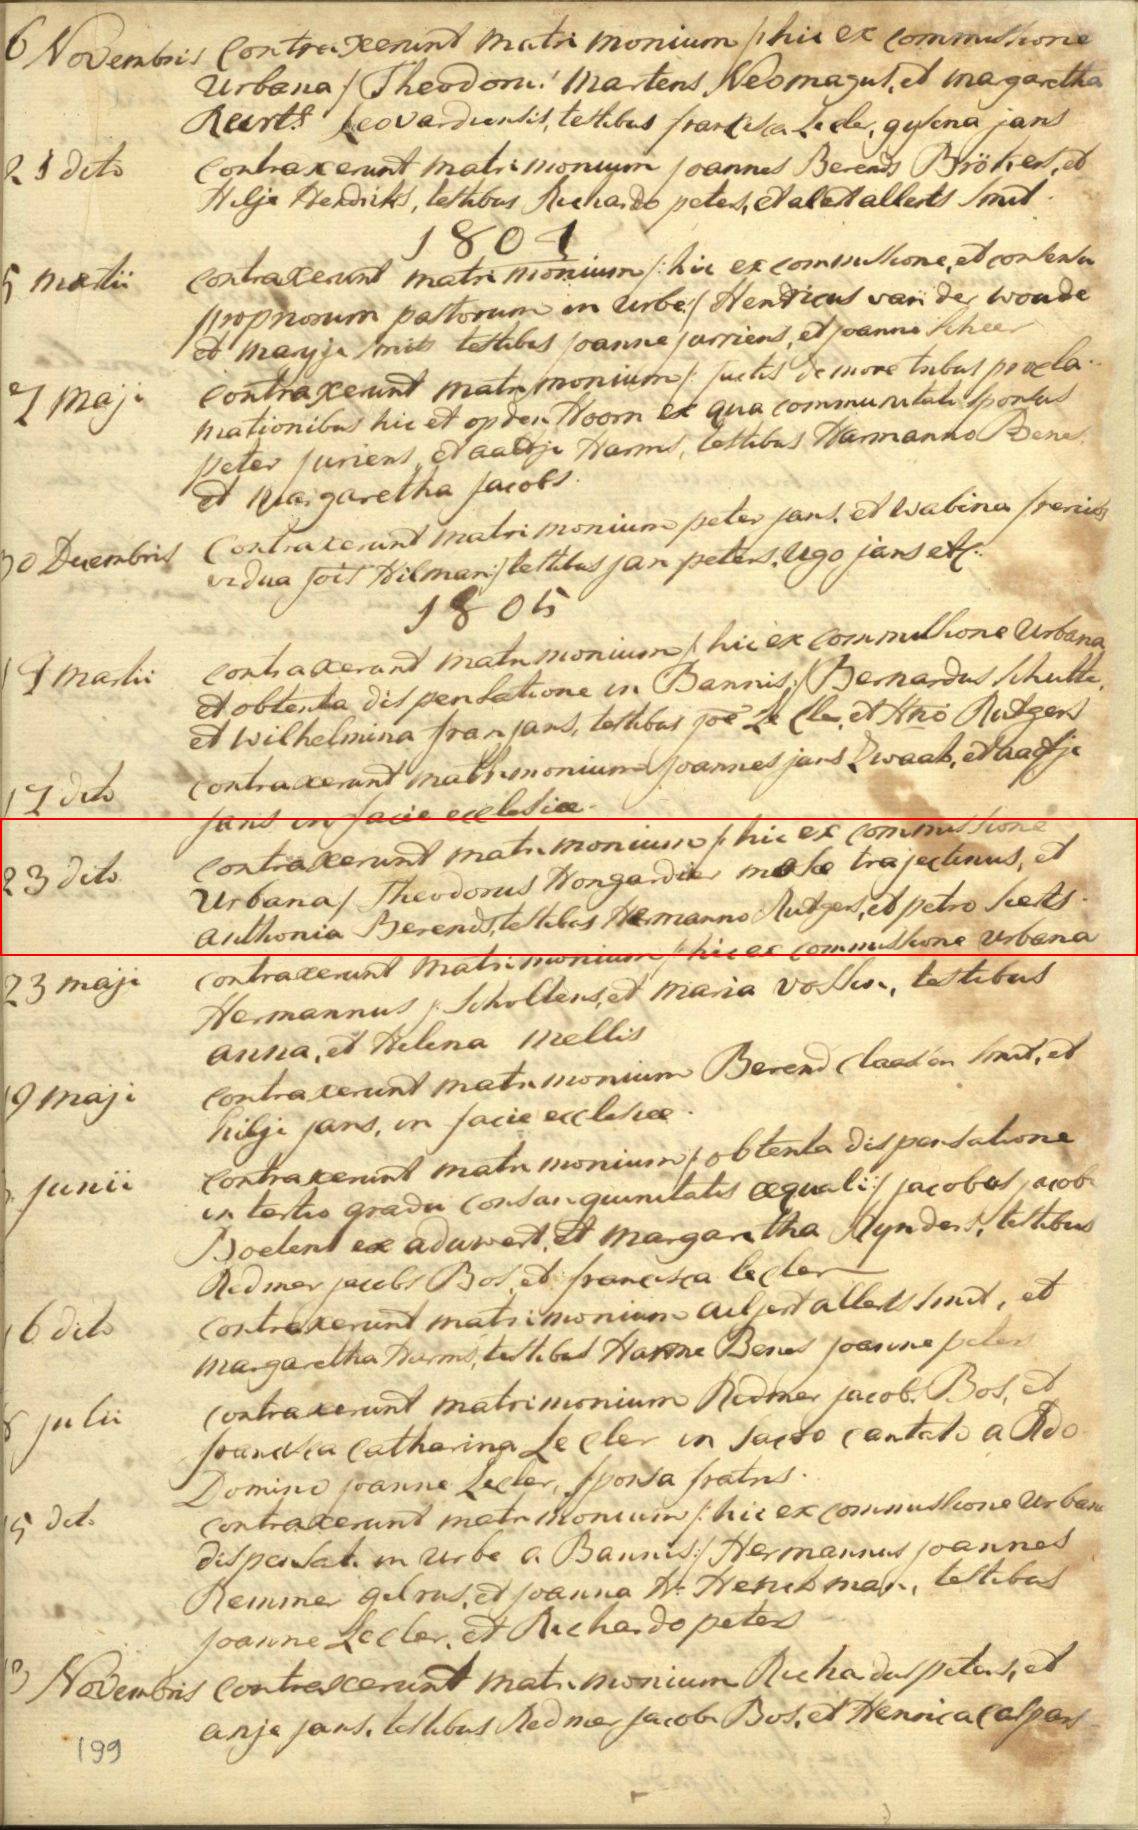 6 Novembris contraxerunt matrimonium /: hic ex commissione
Urbana / Theodorus Martens Neomagus, et margaretha
Leovardiensis, testibus francisca Lecler, gysena jans
21 dito contraxerunt matrimonium joannes Berends Brökers, et
Hilje Hendriks, testibus Richardo peters, et alert allerts Smit.
1804
5 martii contraxerunt matrimonium /: hic ex commissione, et consensu
propriorum pastorum in urbe / Henricus van der woude
et maryja smit testibus joanne jurriens, et joanne scheer
7 Maji contraxerunt matrimonium /: factis de more tribus procla-
mationibus hic et op den Hoorn ex qua communitate sponsus
peter juriens, et aaltje Harms, testibus Harmanno Benes
et Margaretha jacobs.
30 Decembris contraxerunt matrimonium peter jans, et Wabina frerichs
vidua jois Hilman:/ testibus jan peters, Ugo jans etc.
1805
19 martii contraxerunt matrimonium /: hic ex commissione Urbana,
et obtenta dispensatione in Bannis:/ Bernardus Schutte,
et Wilhelmina franjans, testibus joe Le Cler, et Hno Rutgers
17 dito contraxerunt matrimonium joannes jans Zwaab, et aaltje
jans in facie ecclesiae.
23 dito contraxerunt matrimonium /: hic ex commissione
Urbana / Theodorus Hongardier mosae trajectinus, et
anthonia Berends, testibus Hermanno Rutgers, et petro Seets.
23 maji contraxerunt matrimonium /: hic ex commissione urbana
Hermannus j: Scholtens, et maria vossen, testibus
anna, et Helena Mellis
19 maji contraxerunt matrimonium Berend claassen Smit, et
hilje jans, in facie ecclesiae.
junii contraxerunt matrimonium /: obtenta dispensatione
in tertio gradu consanguinitatis aequali:/ jacobus jacobs
Boelens ex aduwert, et margaretha Rynders, testibus
Redmer jacobs Bos, et francisca lecler
16 dito contraxerunt matrimonium allerts Smit, et
margaretha Harms, testibus Harme Benes joanne peters
8 julii contraxerunt matrimonium Redmer jacobs Bos, et
francisca catharina Le Cler in sacro cantato a Rdo
Domino joanne Lecler, sponsa fratris.
15 dito contraxerunt matrimonium /: hic ex commissione Urbana
dispensati in urbe a Bannis:/ Hermannus joannes
Remmer et joanna Hr: testibus
joanne Lecler, et Richardo peters
13 Novembris contraxerunt matrimonium Richardus peters, et
anje jans, testibus Redmer jacobs Bos, et Henrica caspars
199